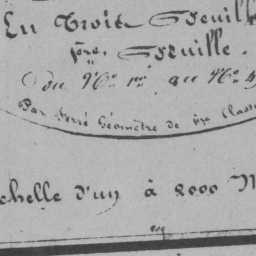 En Trois Feuill
1ère. Feuille.
Du N° 1er au N°
Par Ferré Géomètre de 1re Classe
chelle d'un à 2000 M